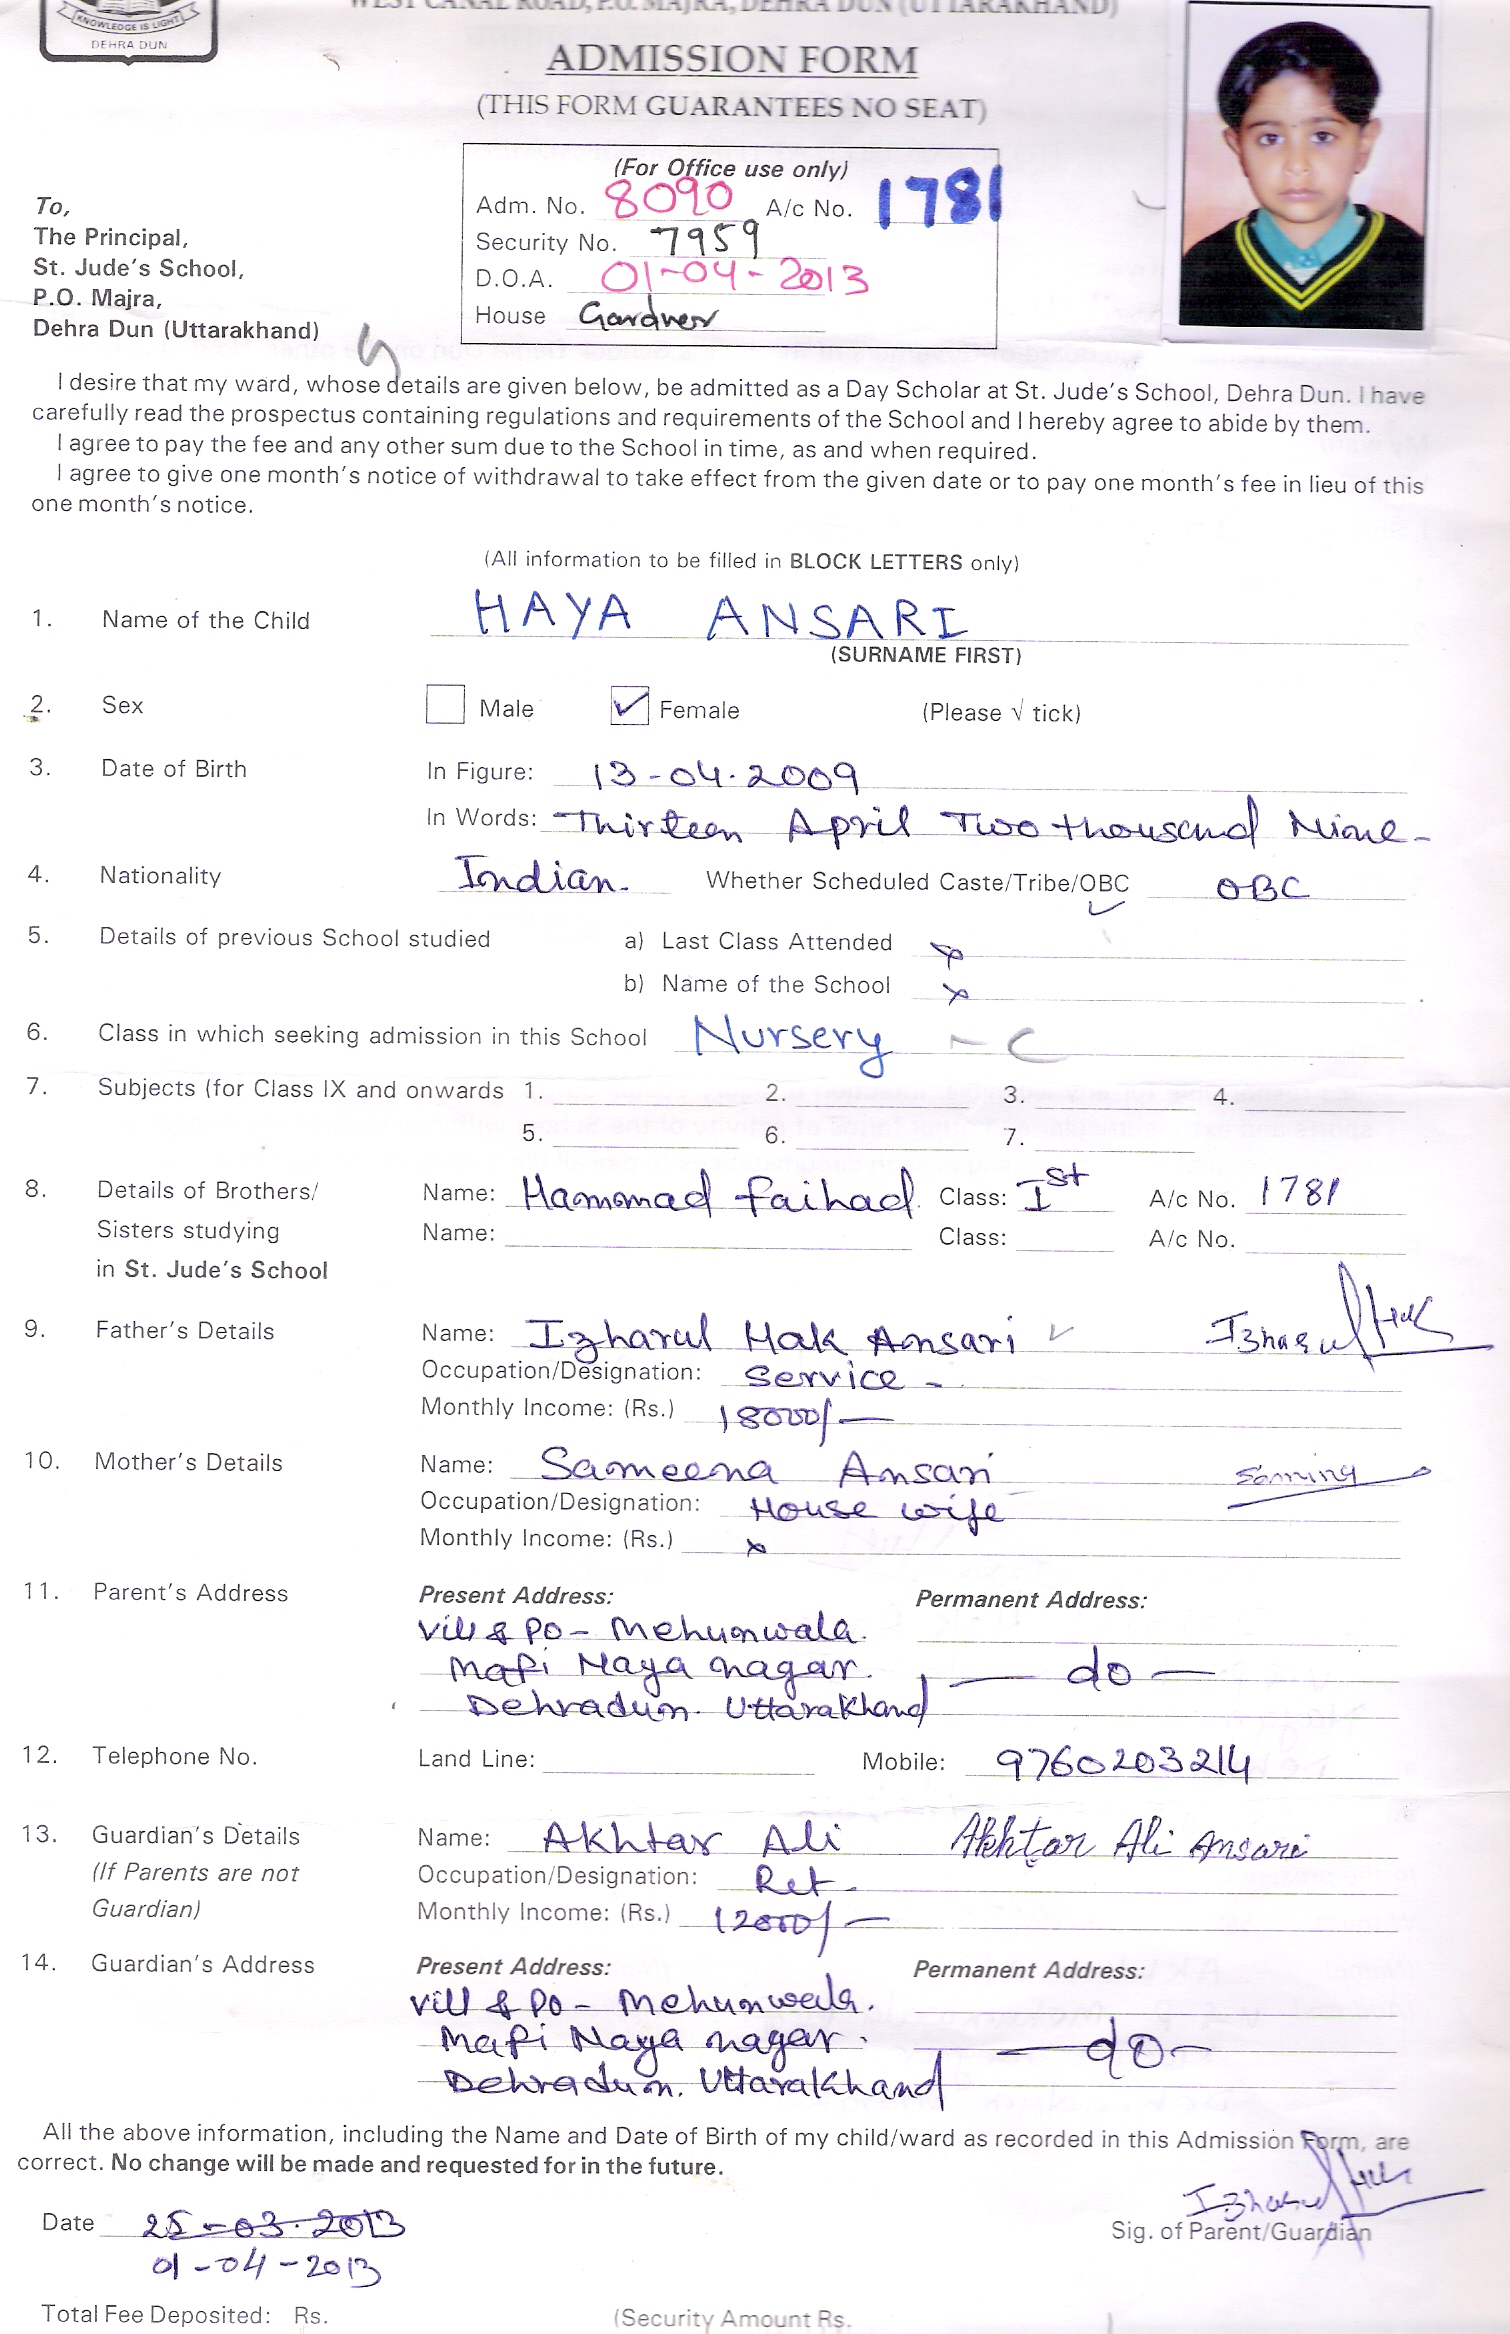 KNOWLEDGE IS LIGHT
DEHRA DUN
WEST CANAL ROAD, P.O. MAJRA, DEHRA DUN (UTTARAKHAND)
ADMISSION FORM
(THIS FORM GUARANTEES NO SEAT)
(For Office use only)
Adm. No. 8090 A/c No. 1781
Security No. 7959
D.O.A. 01-04-2013
House Gardner
To,
The Principal,
St. Jude's School,
P.O. Majra,
Dehra Dun (Uttarakhand)
I desire that my ward, whose details are given below, be admitted as a Day Scholar at St. Jude's School, Dehra Dun. I have
carefully read the prospectus containing regulations and requirements of the School and I hereby agree to abide by them.
I agree to pay the fee and any other sum due to the School in time, as and when required.
I agree to give one month's notice of withdrawal to take effect from the given date or to pay one month's fee in lieu of this
one month's notice.
(All information to be filled in BLOCK LETTERS only)
1. Name of the Child HAYA ANSARI
(SURNAME FIRST)
2. Sex Male ✓ Female (Please √ tick)
3. Date of Birth In Figure: 13-04.2009
In Words: Thirteen April Two thousand Nine -
4. Nationality Indian. Whether Scheduled Caste/Tribe/OBC OBC
5. Details of previous School studied a) Last Class Attended x
b) Name of the School x
6. Class in which seeking admission in this School Nursery - C
7. Subjects (for Class IX and onwards 1. 2. 3. 4.
5. 6. 7.
8. Details of Brothers/ Name: Hammad faihad Class: Ist A/c No. 1781
Sisters studying Name: Class: A/c No.
in St. Jude's School
9. Father's Details Name: Izharul Hak Ansari ✓ Izharul Hak
Occupation/Designation: Service -
Monthly Income: (Rs.) 18000/-
10. Mother's Details Name: Sameena Ansari
Occupation/Designation: House wife
Monthly Income: (Rs.) x
11. Parent's Address Present Address: Permanent Address:
Vill & PO - Mehunwala.
Mafi Naya nagar. - do -
Dehradun. Uttarakhand
12. Telephone No. Land Line: Mobile: 9760203214
13. Guardian's Details Name: Akhtar Ali Akhtar Ali Ansari
(If Parents are not Occupation/Designation: Ret.
Guardian) Monthly Income: (Rs.) 12000/-
14. Guardian's Address Present Address: Permanent Address:
Vill & PO - Mehunwala.
Mafi Naya nagar. - do -
Dehradun. Uttarakhand
All the above information, including the Name and Date of Birth of my child/ward as recorded in this Admission Form, are
correct. No change will be made and requested for in the future.
Izharul Hak
Date 25-03-2013 Sig. of Parent/Guardian
01-04-2013
Total Fee Deposited: Rs. (Security Amount Rs. )